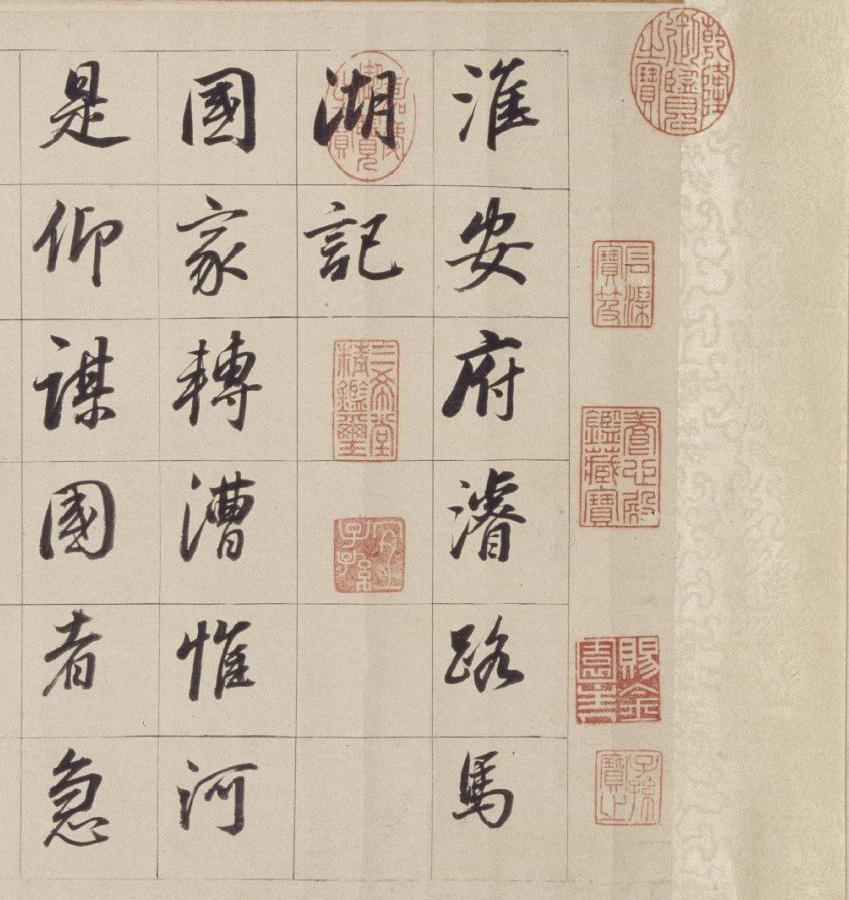 乾隆御覽之寶
石渠寶笈
養心殿鑑藏寶
子孫寶之
淮安府濬路馬
湖記
嘉慶御覽之寶
三希堂精鑑璽
宜子孫
國家轉漕惟河
是仰謀國者急